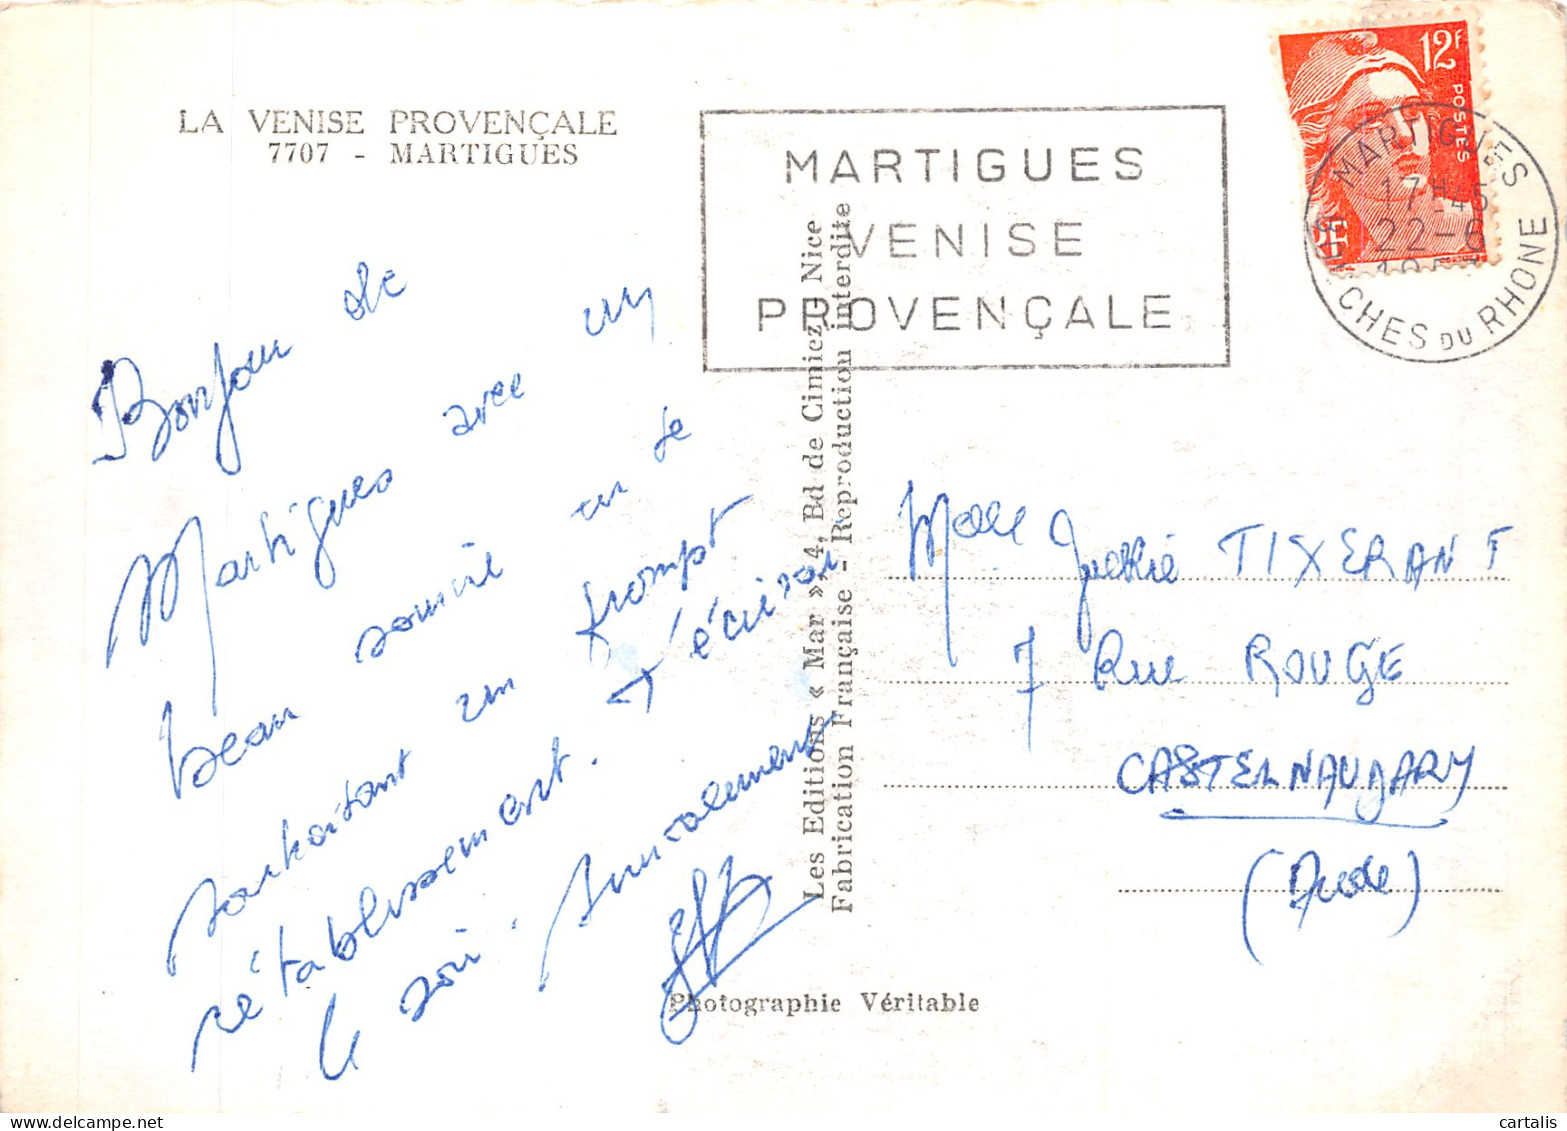 LA VENISE PROVENÇALE
7707 - MARTIGUES
Bonjour de
Martigues avec un
beau soleil en te
souhaitant un prompt
rétablissement. T'écrirai
le soir. Amicalement
Les Editions « Mar » 4, Bd de Cimiez - Nice
Fabrication Française - Reproduction interdite
Photographie Véritable
MARTIGUES
VENISE
PROVENÇALE
12F
POSTES
MARTIGUES
17H45
22-6
BOUCHES DU RHONE
Melle Jackie TIXERANT
7 Rue ROUGE
CASTELNAUDARY
(Aude)
© cartalis